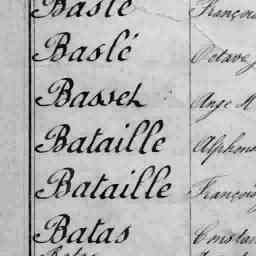 Baslé François
Baslé Octave
Basset Ange M
Bataille Alphons
Bataille François
Batas Constan